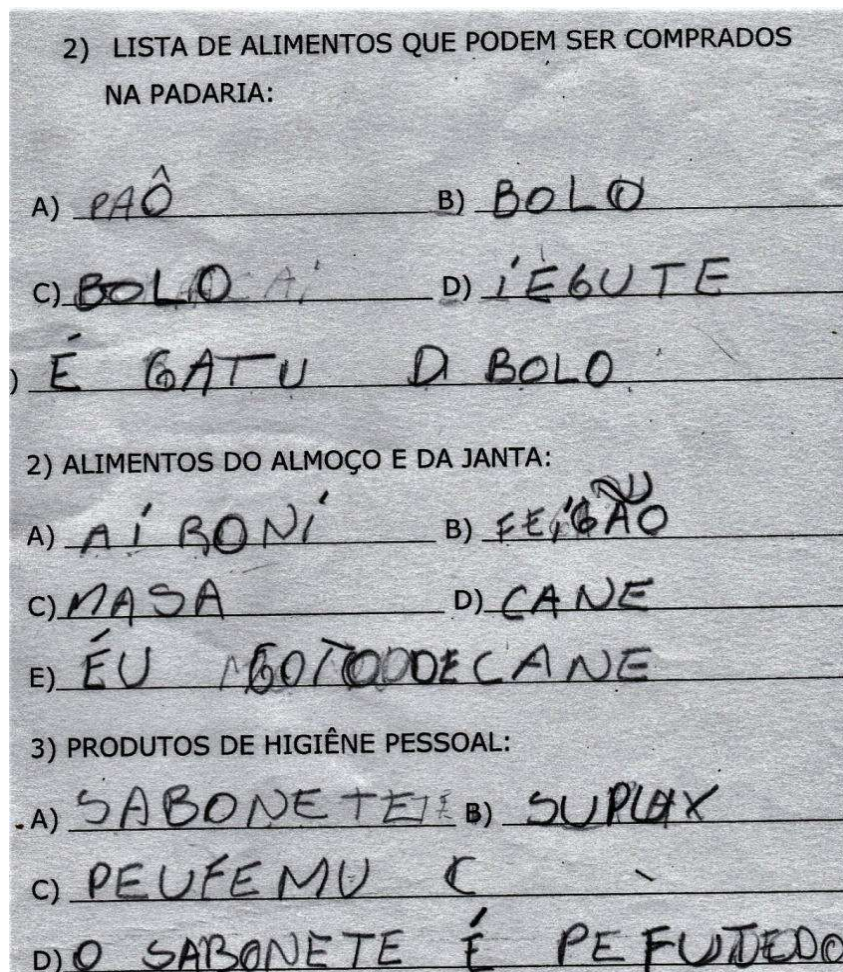 2) LISTA DE ALIMENTOS QUE PODEM SER COMPRADOS
NA PADARIA:
A) PAÔ B) BOLO
C) BOLO D) IÉGUTE
) É GATU D BOLO
2) ALIMENTOS DO ALMOÇO E DA JANTA:
A) AÍ RONÍ B) FEIGÃO
C) MASA D) CANE
E) ÉU GOTO DE CANE
3) PRODUTOS DE HIGIÊNE PESSOAL:
A) SABONETE B) SUPLAX
C) PEUFEMU C
D) O SABONETE É